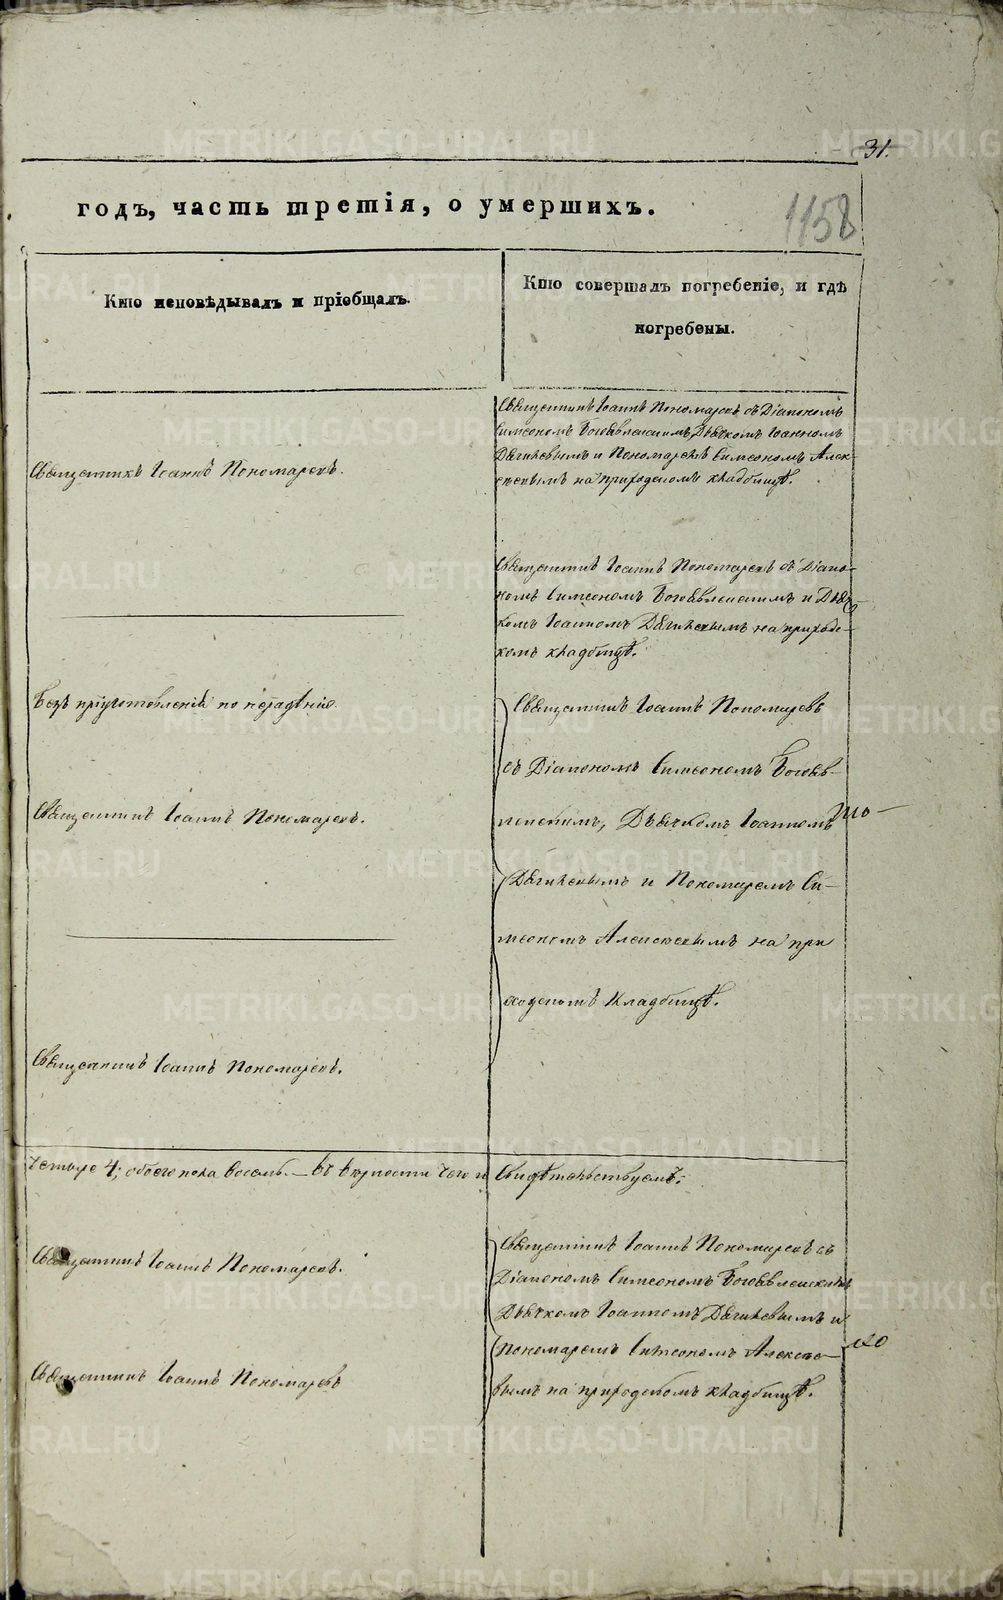 31.
годъ, часть третія, о умершихъ.
1158
Кто исповѣдывалъ и пріобщалъ.
Кто совершалъ погребеніе, и гдѣ
погребены.
Священникъ Іоаннъ Пономаревъ.
Священникъ Іоаннъ Пономаревъ съ Діакономъ
Симеономъ Богоявленскимъ, Дьячкомъ Іоанномъ
и Пономаремъ Симеономъ Алек-
сѣевымъ на приходскомъ кладбищѣ.
Священникъ Іоаннъ Пономаревъ съ Діако-
номъ Симеономъ Богоявленскимъ и Дьяч-
комъ Іоанномъ на приходс-
комъ кладбищѣ.
Безъ приготовленія по нерадѣнію.
Священникъ Іоаннъ Пономаревъ.
Священникъ Іоаннъ Пономаревъ
съ Діакономъ Симеономъ Богояв-
ленскимъ, Дьячкомъ Іоанномъ
и Пономаремъ Си-
меономъ Алексѣевымъ на при
ходскомъ кладбищѣ.
Священникъ Іоаннъ Пономаревъ.
четыре 4; обоего пола восемь. — Въ вѣрности чего и свидѣтельствуемъ:
Священникъ Іоаннъ Пономаревъ.
Священникъ Іоаннъ Пономаревъ
Священникъ Іоаннъ Пономаревъ съ
Діакономъ Симеономъ Богоявленскимъ
Дьячкомъ Іоанномъ и
Пономаремъ Симеономъ Алексѣе-
вымъ на приходскомъ кладбищѣ.
METRIKI.GASO-URAL.RU